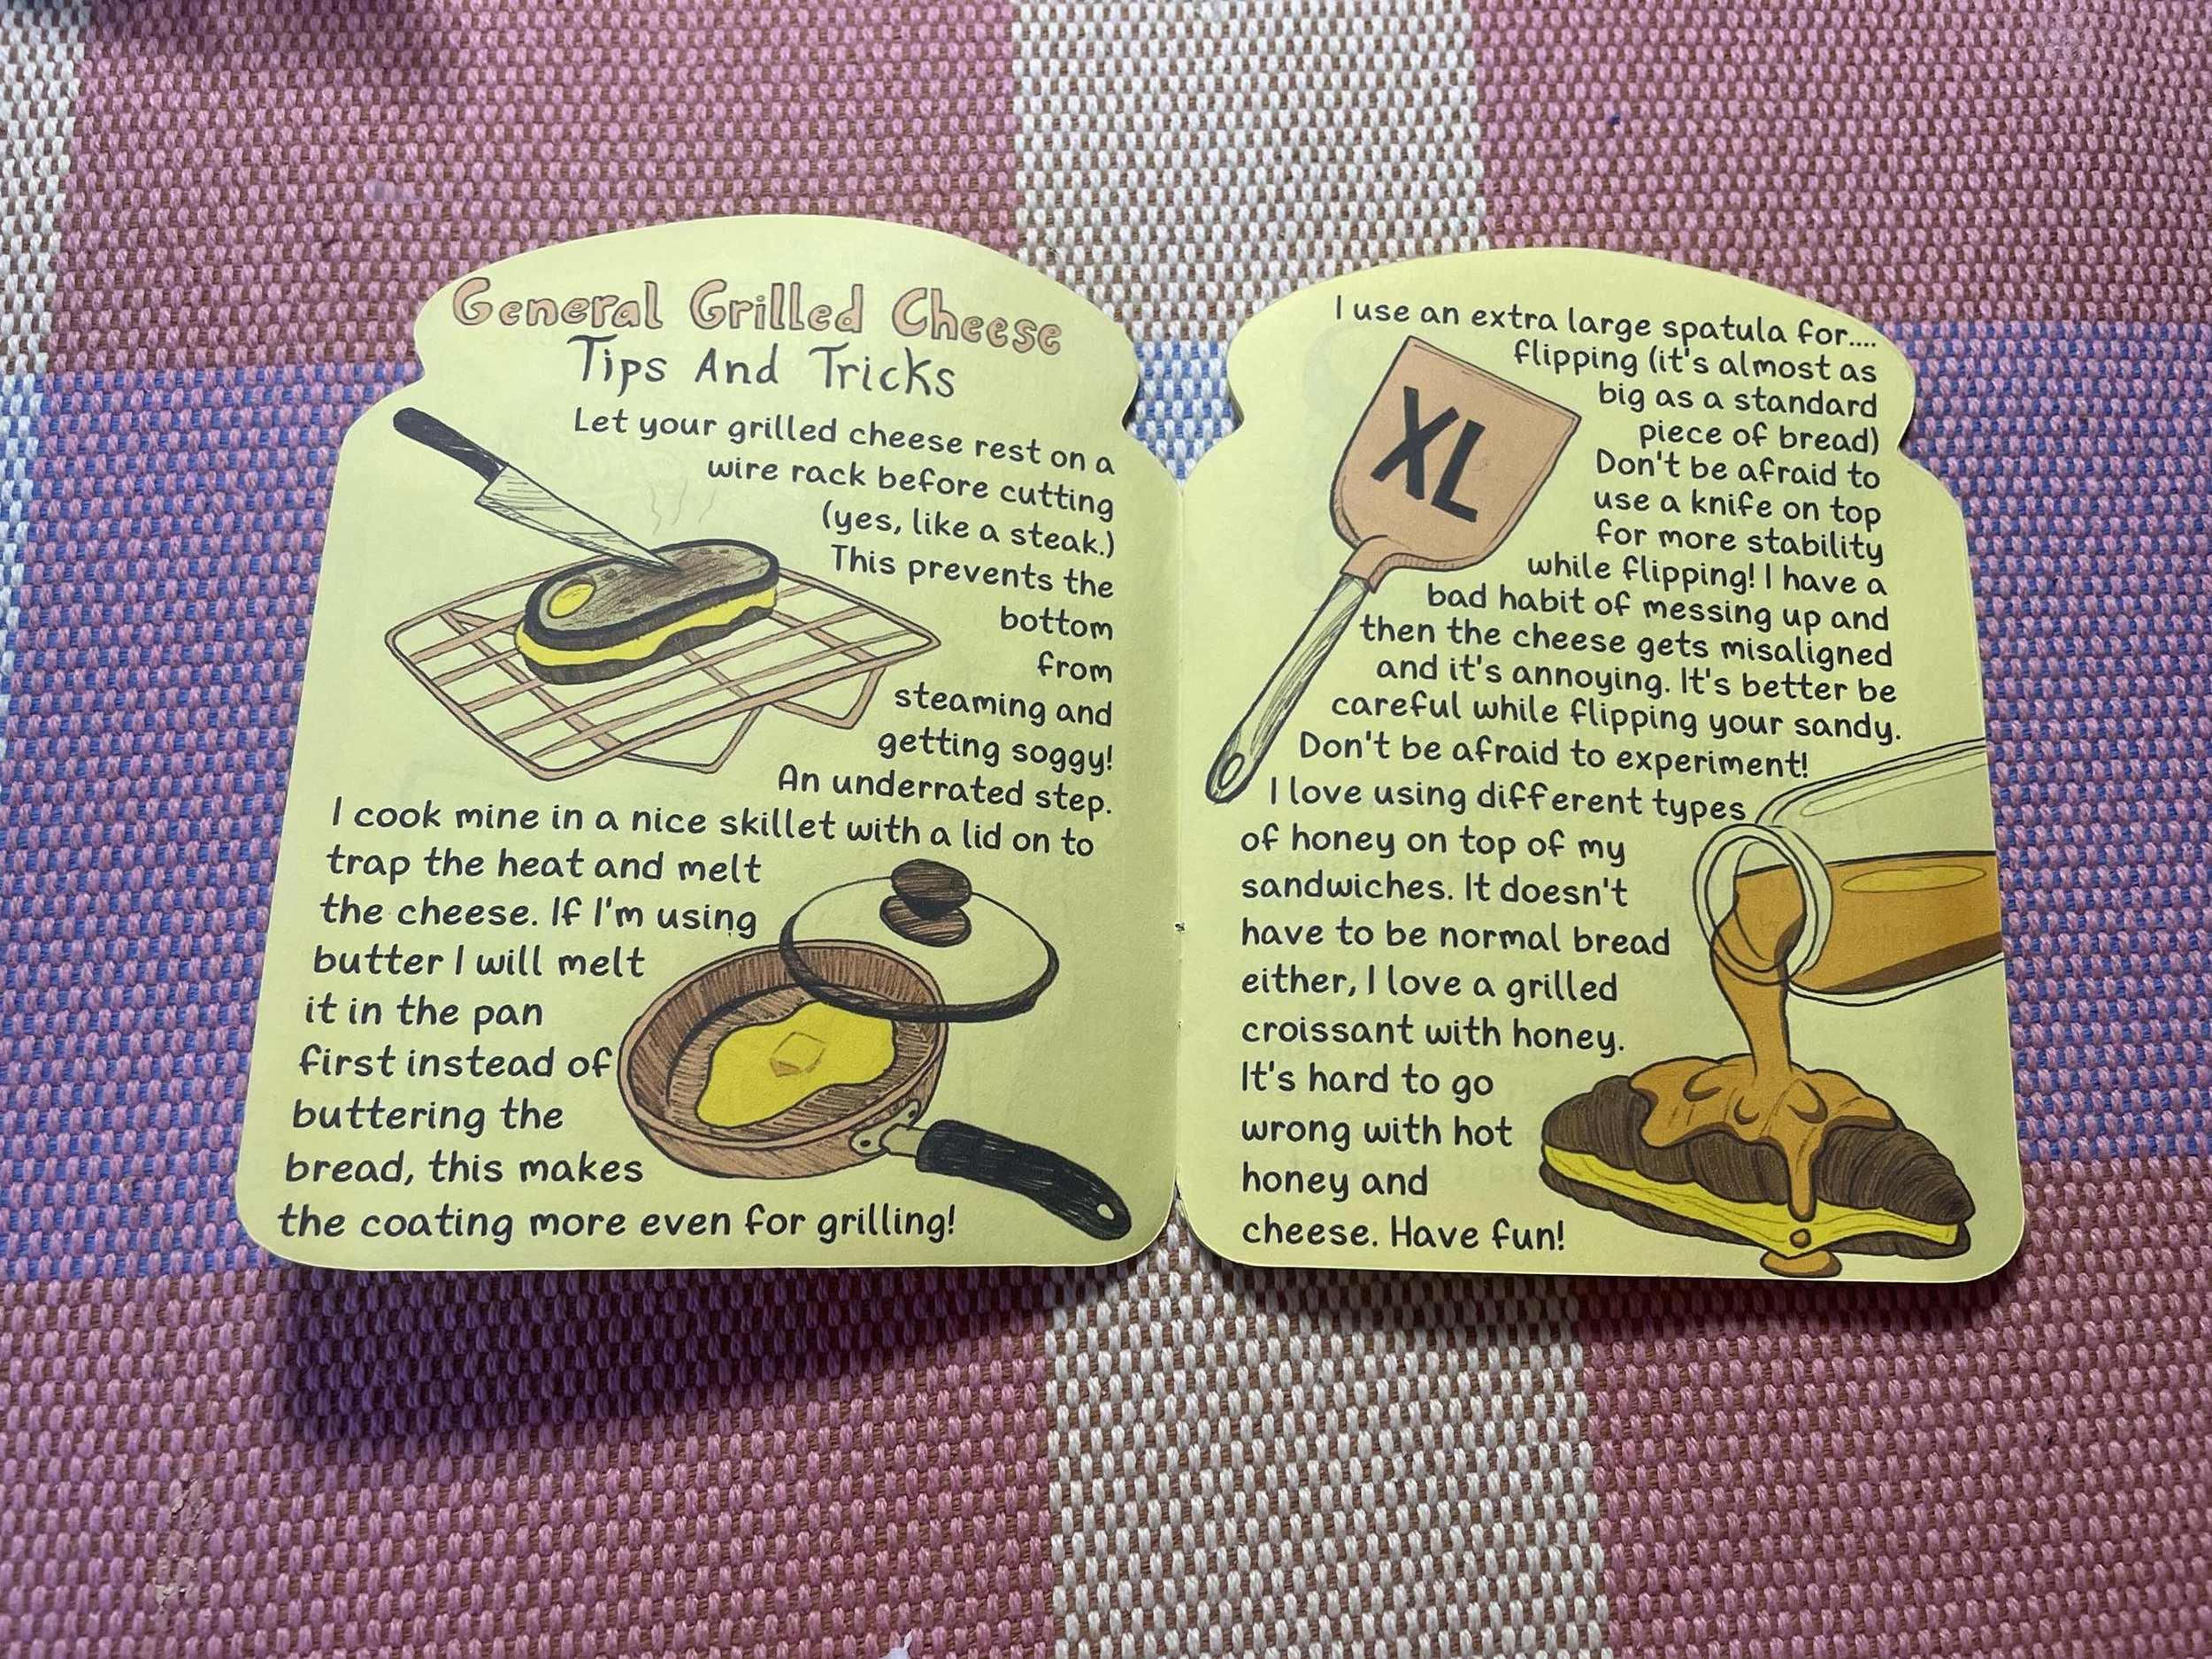 General Grilled Cheese
Tips And Tricks
Let your grilled cheese rest on a
wire rack before cutting
(yes, like a steak.)
This prevents the
bottom
from
steaming and
getting soggy!
An underrated step.
I cook mine in a nice skillet with a lid on to
trap the heat and melt
the cheese. If I'm using
butter I will melt
it in the pan
first instead of
buttering the
bread, this makes
the coating more even for grilling!
I use an extra large spatula for....
flipping (it's almost as
big as a standard
piece of bread)
Don't be afraid to
use a knife on top
for more stability
while flipping! I have a
bad habit of messing up and
then the cheese gets misaligned
and it's annoying. It's better be
careful while flipping your sandy.
Don't be afraid to experiment!
I love using different types
of honey on top of my
sandwiches. It doesn't
have to be normal bread
either, I love a grilled
croissant with honey.
It's hard to go
wrong with hot
honey and
cheese. Have fun!
XL